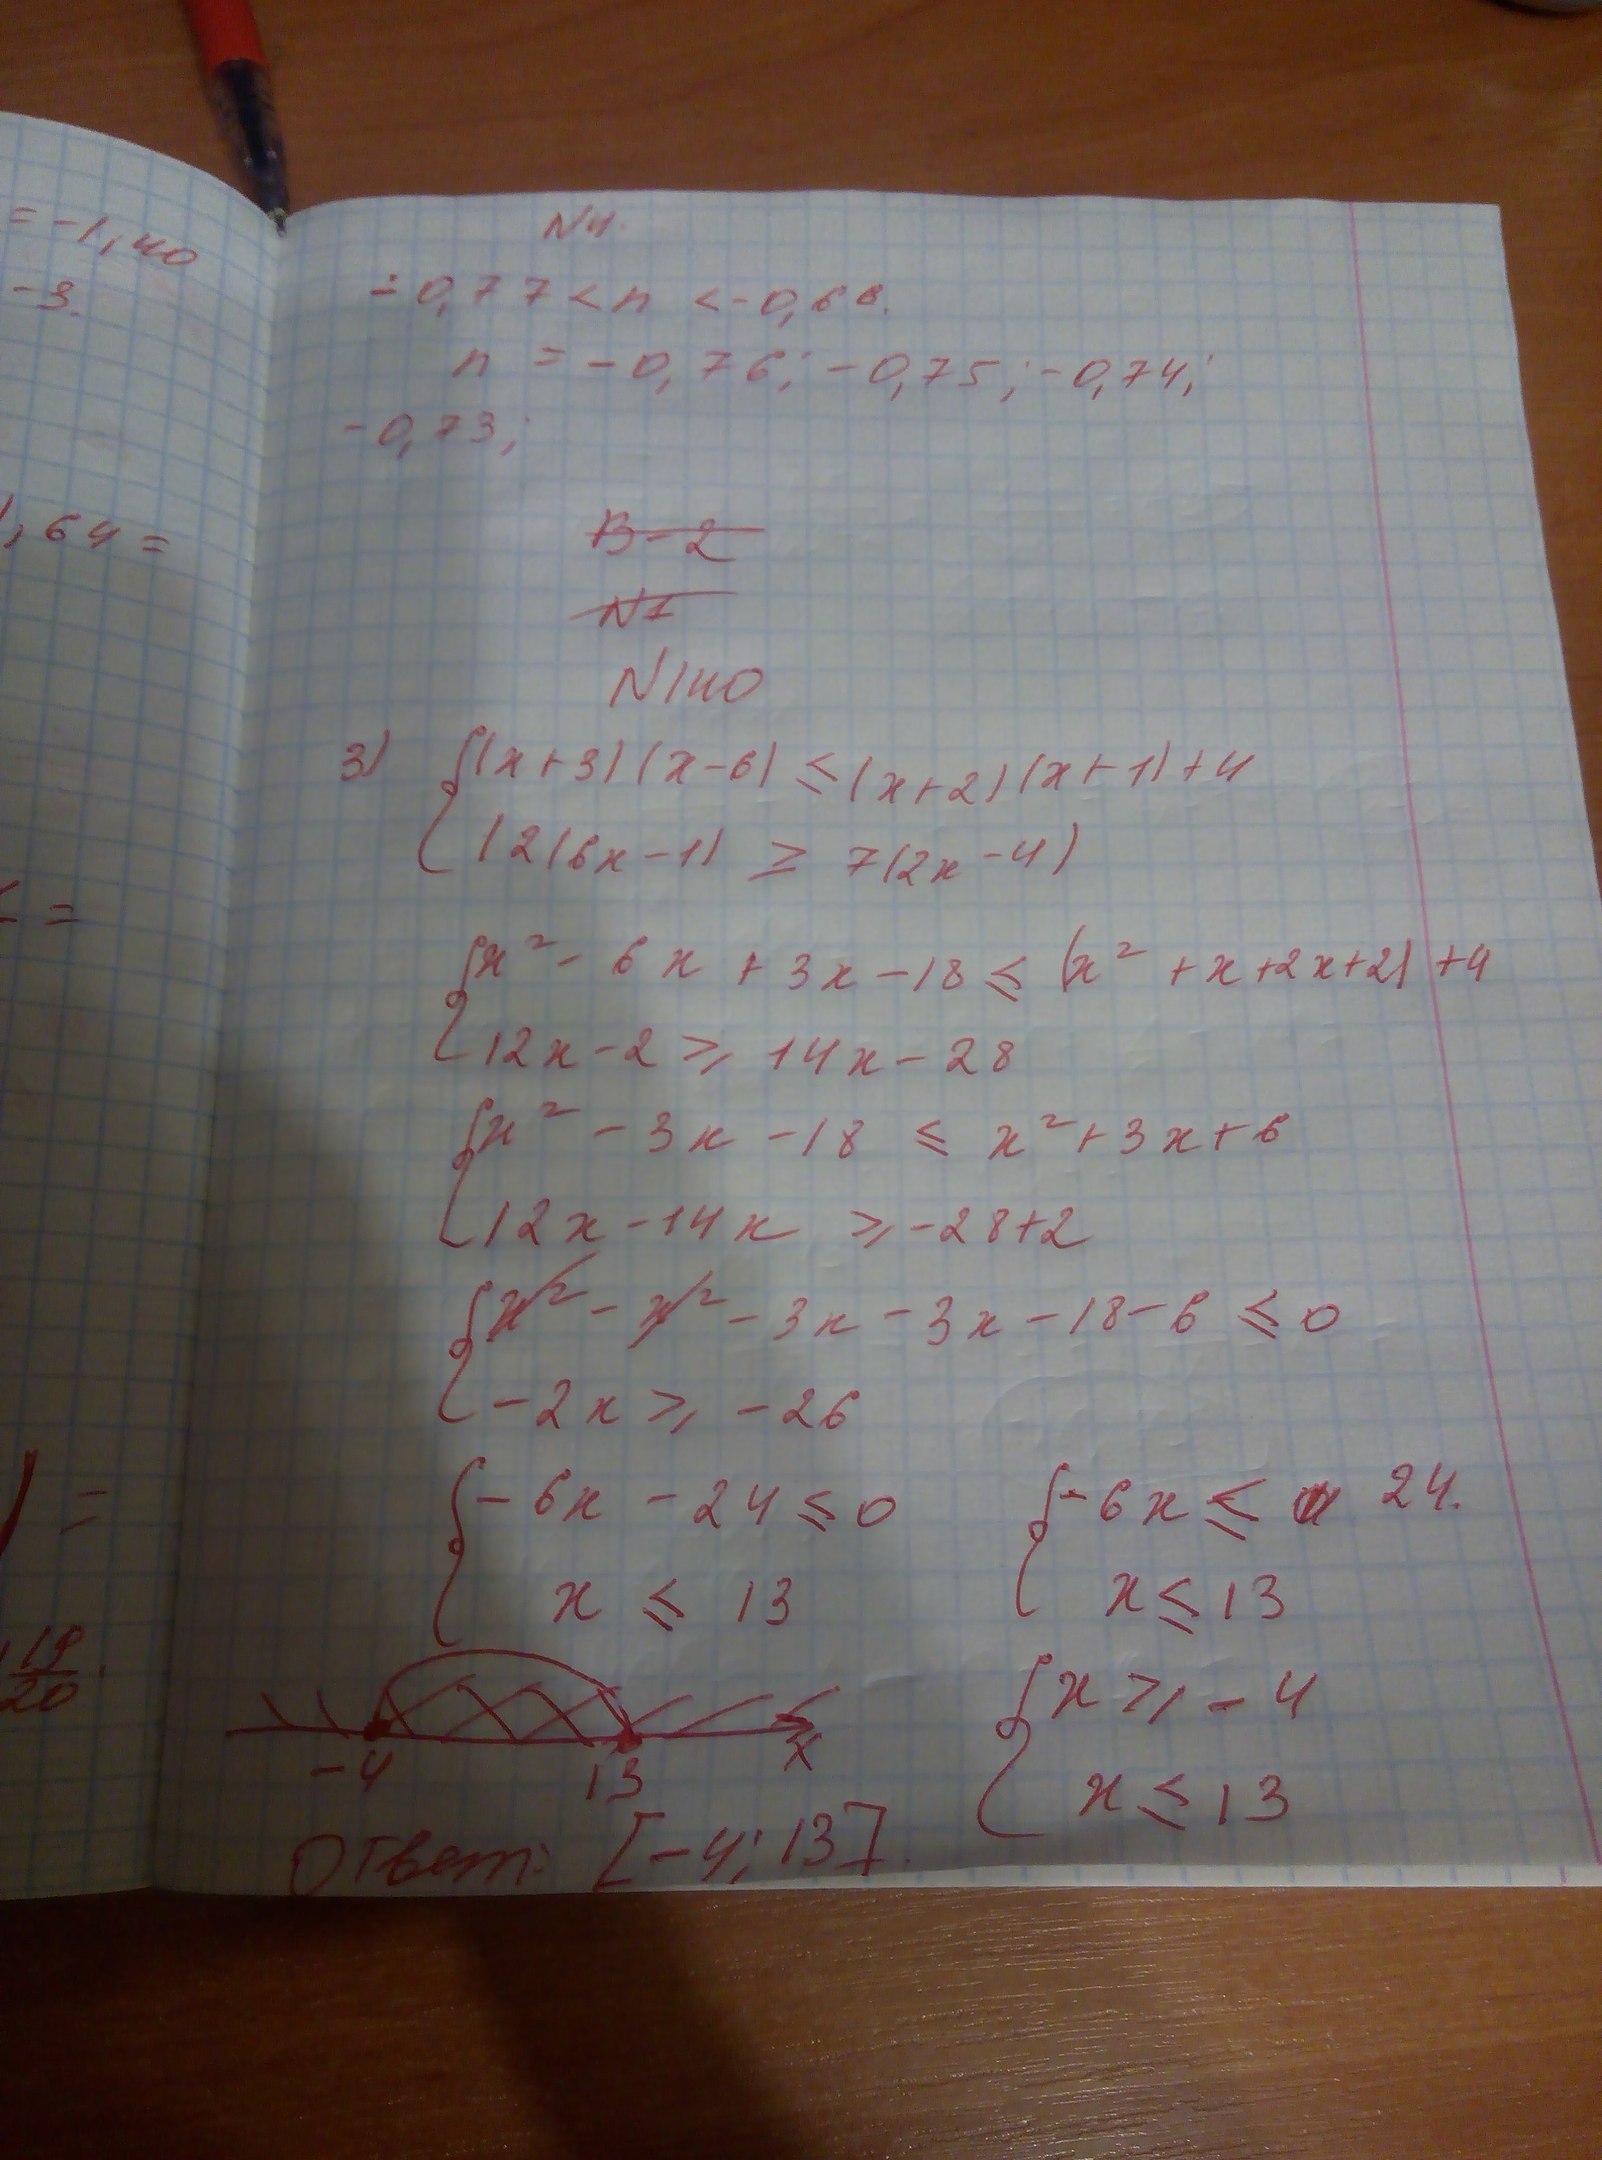 = -1,40
-3.
,64 =
=
) =
19/20.
N4.
-0,77 < n < -0,66.
n = -0,76; -0,75; -0,74;
-0,73;
В-2
N1
N140
3) {(x+3)(x-6) ≤ (x+2)(x+1)+4
{2(6x-1) ≥ 7(2x-4)
{x² - 6x + 3x - 18 ≤ (x² + x + 2x + 2) + 4
12x - 2 ≥ 14x - 28
{x² - 3x - 18 ≤ x² + 3x + 6
12x - 14x ≥ -28 + 2
{x² - x² - 3x - 3x - 18 - 6 ≤ 0
-2x ≥ -26
{-6x - 24 ≤ 0
x ≤ 13
{-6x ≤ 24.
x ≤ 13
{x ≥ -4
x ≤ 13
-4 13 x
Ответ: [-4; 13].